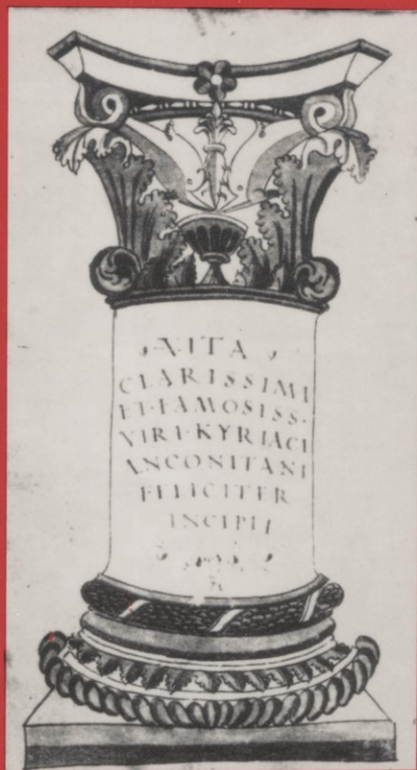 VITA
CLARISSIMI
ET·FAMOSISS·
VIRI·KYRIACI
ANCONITANI
FELICITER
INCIPIT